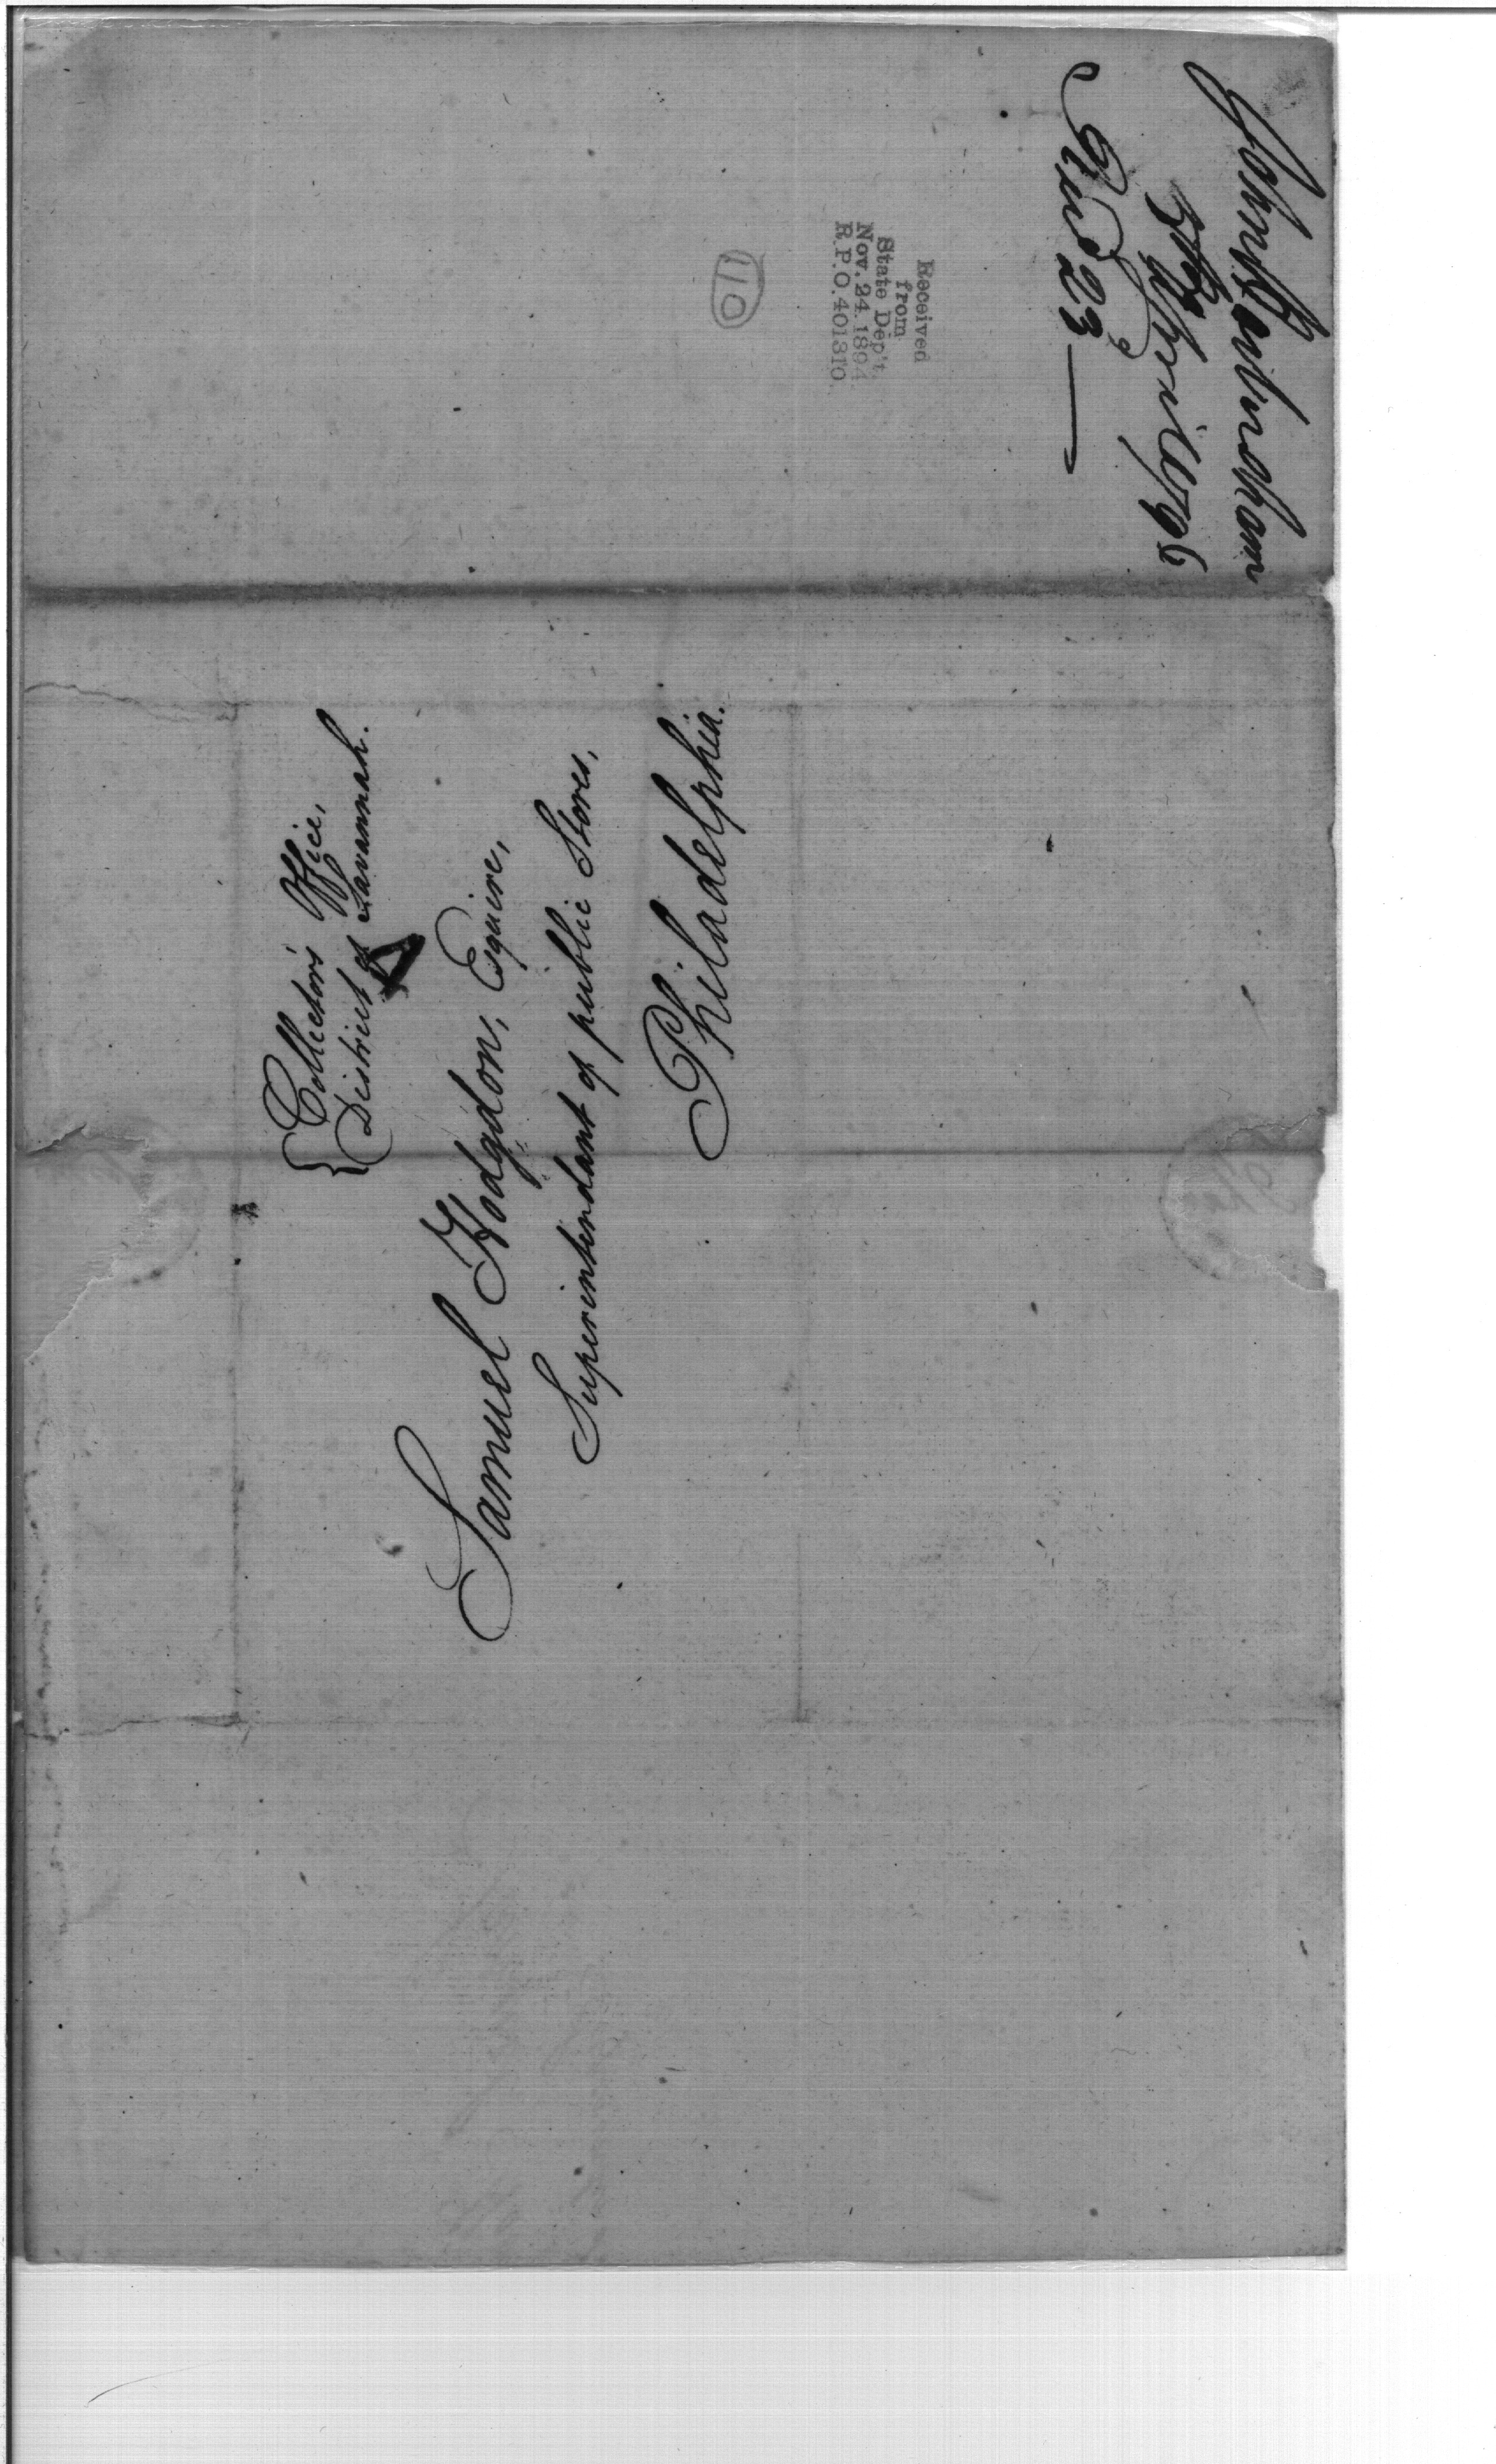 John Habersham
5th April 1796
Recd 23d
Received
from
State Dep't.
Nov. 24. 1894
R.P.O. 401310
110
Collector's Office,
District of Savannah.
Samuel Hodgdon, Esquire,
Superintendant of public Stores,
Philadelphia.